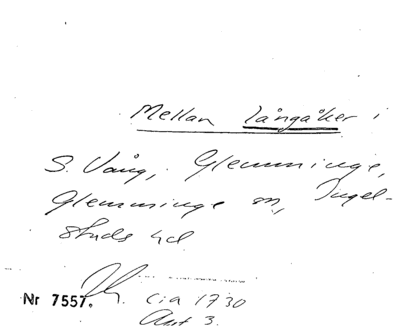 Mellan Långåker i
S. Vång, Glemminge,
Glemminge sn, Ingel-
stads hd
Nr 7557. cia 1730
Akt 3.